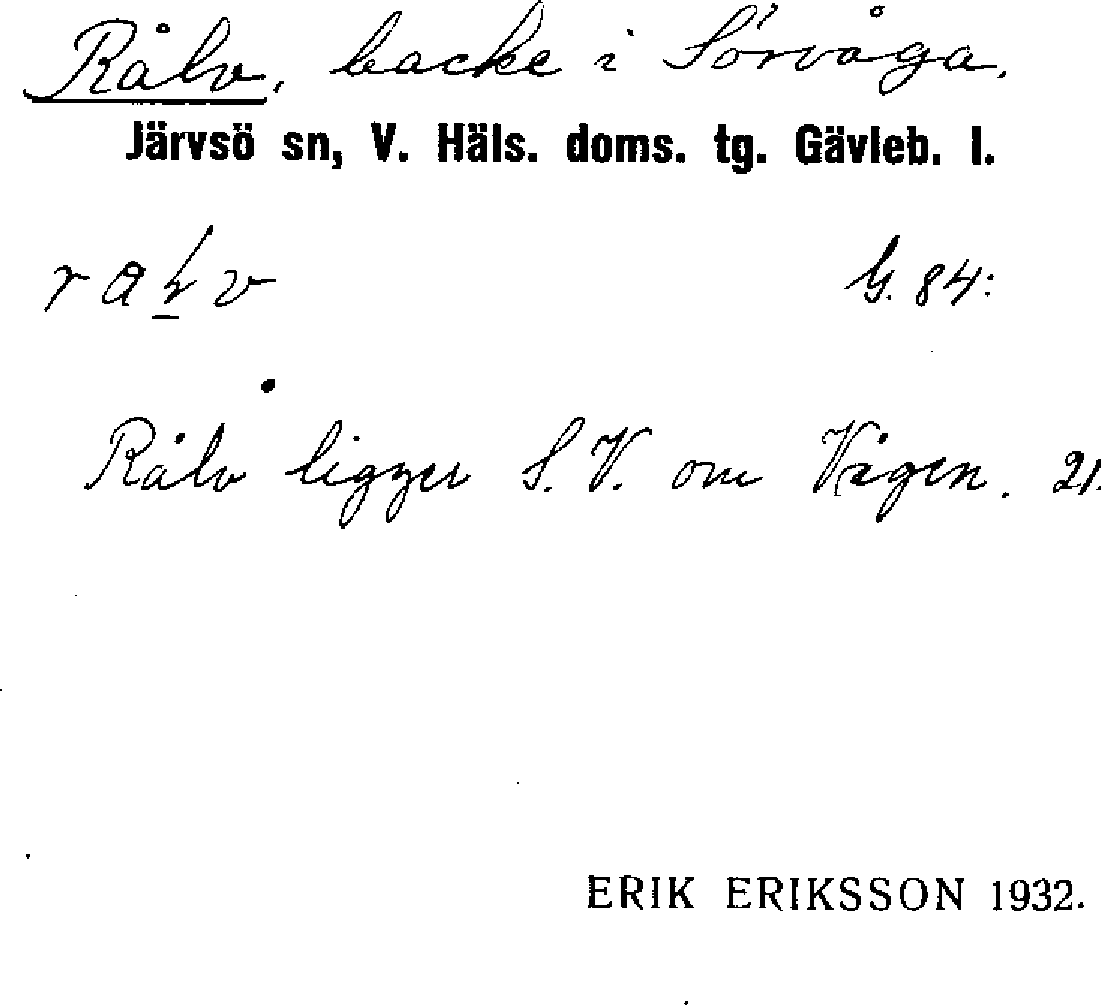 Rålv, backe i Sörvåga.
Järvsö sn, V. Häls. doms. tg. Gävleb. l.
G. 84:
Rålv ligger S.V. om Vågen. 21.
ERIK ERIKSSON 1932.